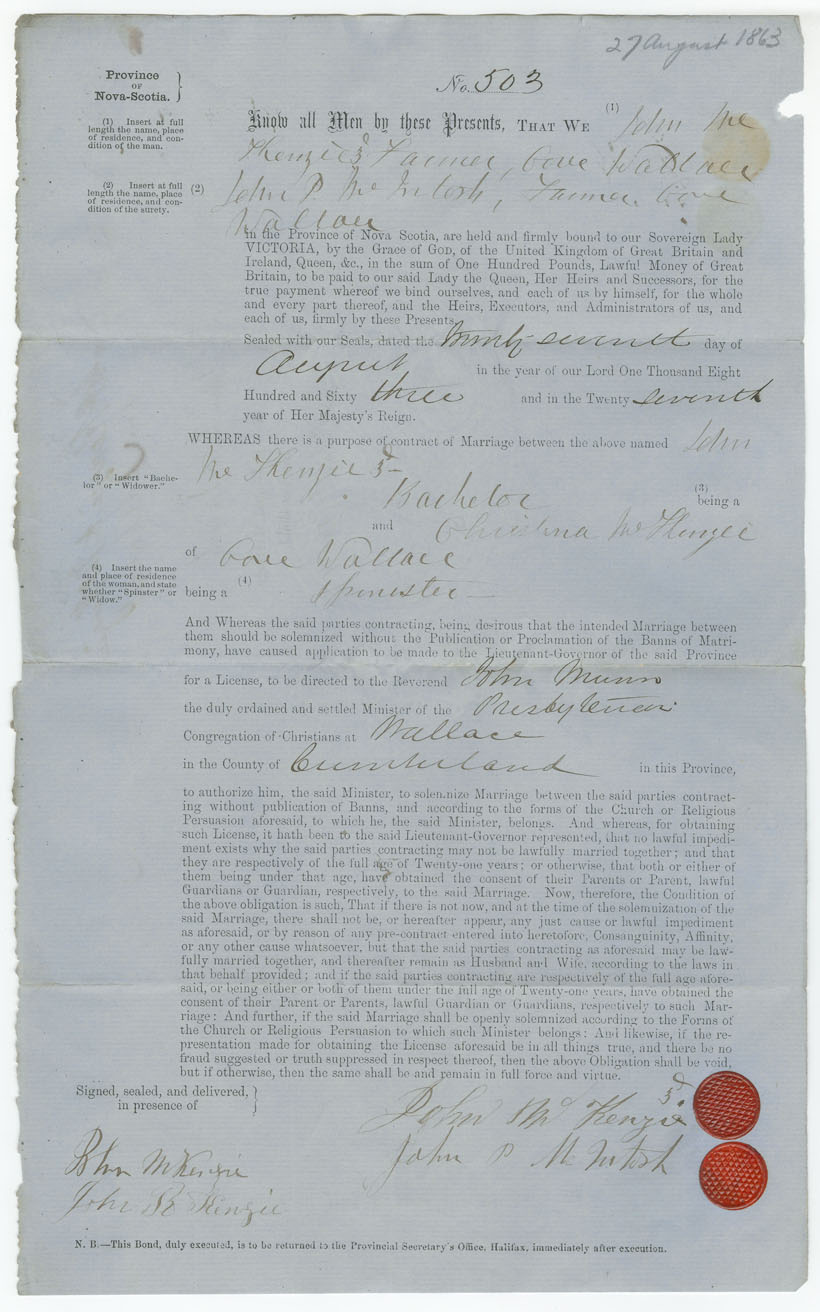 27 August 1863
Province
OF
Nova-Scotia.
No. 503
(1) Insert at full
length the name, place
of residence, and con-
dition of the man.
Know all Men by these Presents, THAT WE (1) John Mc
Kenzie 3d Farmer, Cove Wallace
(2) Insert at full
length the name, place
of residence, and con-
dition of the surety.
(2) John P. McIntosh, Farmer. Cove
Wallace
in the Province of Nova Scotia, are held and firmly bound to our Sovereign Lady
VICTORIA, by the Grace of GOD, of the United Kingdom of Great Britain and
Ireland, Queen, &c., in the sum of One Hundred Pounds, Lawful Money of Great
Britain, to be paid to our said Lady the Queen, Her Heirs and Successors, for the
true payment whereof we bind ourselves, and each of us by himself, for the whole
and every part thereof, and the Heirs, Executors, and Administrators of us, and
each of us, firmly by these Presents.
Sealed with our Seals, dated the twenty seventh day of
August in the year of our Lord One Thousand Eight
Hundred and Sixty three and in the Twenty seventh
year of Her Majesty's Reign.
WHEREAS there is a purpose of contract of Marriage between the above named John
McKenzie 3d
(3) Insert "Bache-
lor" or "Widower."
Bachelor (3) being a
and Christina McKenzie
of Cove Wallace
(4) Insert the name
and place of residence
of the woman, and state
whether "Spinster" or
"Widow."
being a (4) Spinster
And Whereas the said parties contracting, being desirous that the intended Marriage between
them should be solemnized without the Publication or Proclamation of the Banns of Matri-
mony, have caused application to be made to the Lieutenant-Governor of the said Province
for a License, to be directed to the Reverend John Munro
the duly ordained and settled Minister of the Presbyterian
Congregation of Christians at Wallace
in the County of Cumberland in this Province,
to authorize him, the said Minister, to solemnize Marriage between the said parties contract-
ing without publication of Banns, and according to the forms of the Church or Religious
Persuasion aforesaid, to which he, the said Minister, belongs. And whereas, for obtaining
such License, it hath been to the said Lieutenant-Governor represented, that no lawful impedi-
ment exists why the said parties contracting may not be lawfully married together; and that
they are respectively of the full age of Twenty-one years; or otherwise, that both or either of
them being under that age, have obtained the consent of their Parents or Parent, lawful
Guardians or Guardian, respectively, to the said Marriage. Now, therefore, the Condition of
the above obligation is such, That if there is not now, and at the time of the solemnization of the
said Marriage, there shall not be, or hereafter appear, any just cause or lawful impediment
as aforesaid, or by reason of any pre-contract entered into heretofore, Consanguinity, Affinity,
or any other cause whatsoever, but that the said parties contracting as aforesaid may be law-
fully married together, and thereafter remain as Husband and Wife, according to the laws in
that behalf provided; and if the said parties contracting are respectively of the full age afore-
said, or being either or both of them under the full age of Twenty-one years, have obtained the
consent of their Parent or Parents, lawful Guardian or Guardians, respectively to such Mar-
riage: And further, if the said Marriage shall be openly solemnized according to the Forms of
the Church or Religious Persuasion to which such Minister belongs: And likewise, if the re-
presentation made for obtaining the License aforesaid be in all things true, and there be no
fraud suggested or truth suppressed in respect thereof, then the above Obligation shall be void,
but if otherwise, then the same shall be and remain in full force and virtue.
Signed, sealed, and delivered,
in presence of
John McKenzie 3d.
John P McIntosh
John McKenzie
John Kenzie
N. B.—This Bond, duly executed, is to be returned to the Provincial Secretary's Office, Halifax, immediately after execution.